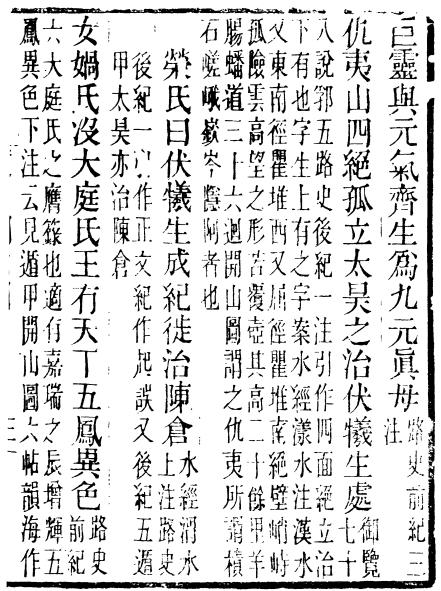 巨靈與元氣齊生爲九元眞母路史前紀三
注
仇夷山四絕孤立太昊之治伏犧生處御覽
七十
八說郛五路史後紀一注引作四面絕立治
下有也字生上有之字案水經漾水注漢水
又東南徑瞿堆西又屈徑瞿堆南絕壁峭峙
孤險雲高望之形若覆壺其高二十餘里羊
腸蟠道三十六迴開山圖謂之仇夷所謂積
石嵯峨嶔岑隱阿者也
榮氏曰伏犧生成紀徙治陳倉水經渭水
上注路史
後紀一作正文紀作起誤又後紀五遁
甲太昊亦治陳倉
女媧氏沒大庭氏王有天下五鳳異色路史
前紀
六大庭氏之膺籙也適有嘉瑞之辰增輝五
鳳異色下注云見遁甲開山圖六帖韻海作